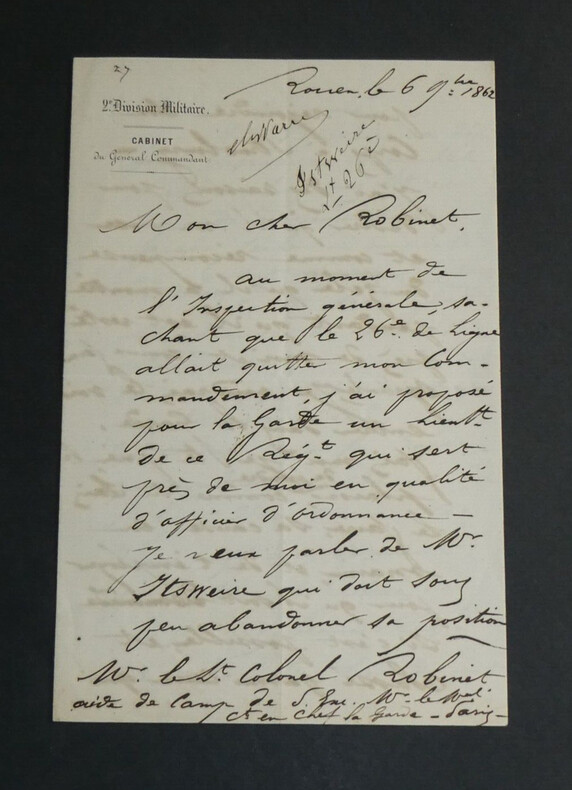 27
Rouen, le 6 9bre 1862
2e Division Militaire.
CABINET
du Général Commandant
Itsweire
Lt 26e
Mon cher Robinet,
au moment de
l'Inspection générale, sa-
chant que le 26e de Ligne
allait quitter mon Com-
mandement, j'ai proposé
pour la Garde un Lieutt
de ce Régt qui sert
près de moi en qualité
d'officier d'ordonnance —
Je veux parler de Mr
Itsweire qui doit sous
peu abandonner sa position
Mr le Lt Colonel Robinet
aide de Camp de S. Exc. Mr le Mal
Ct en Chef la Garde - Paris -